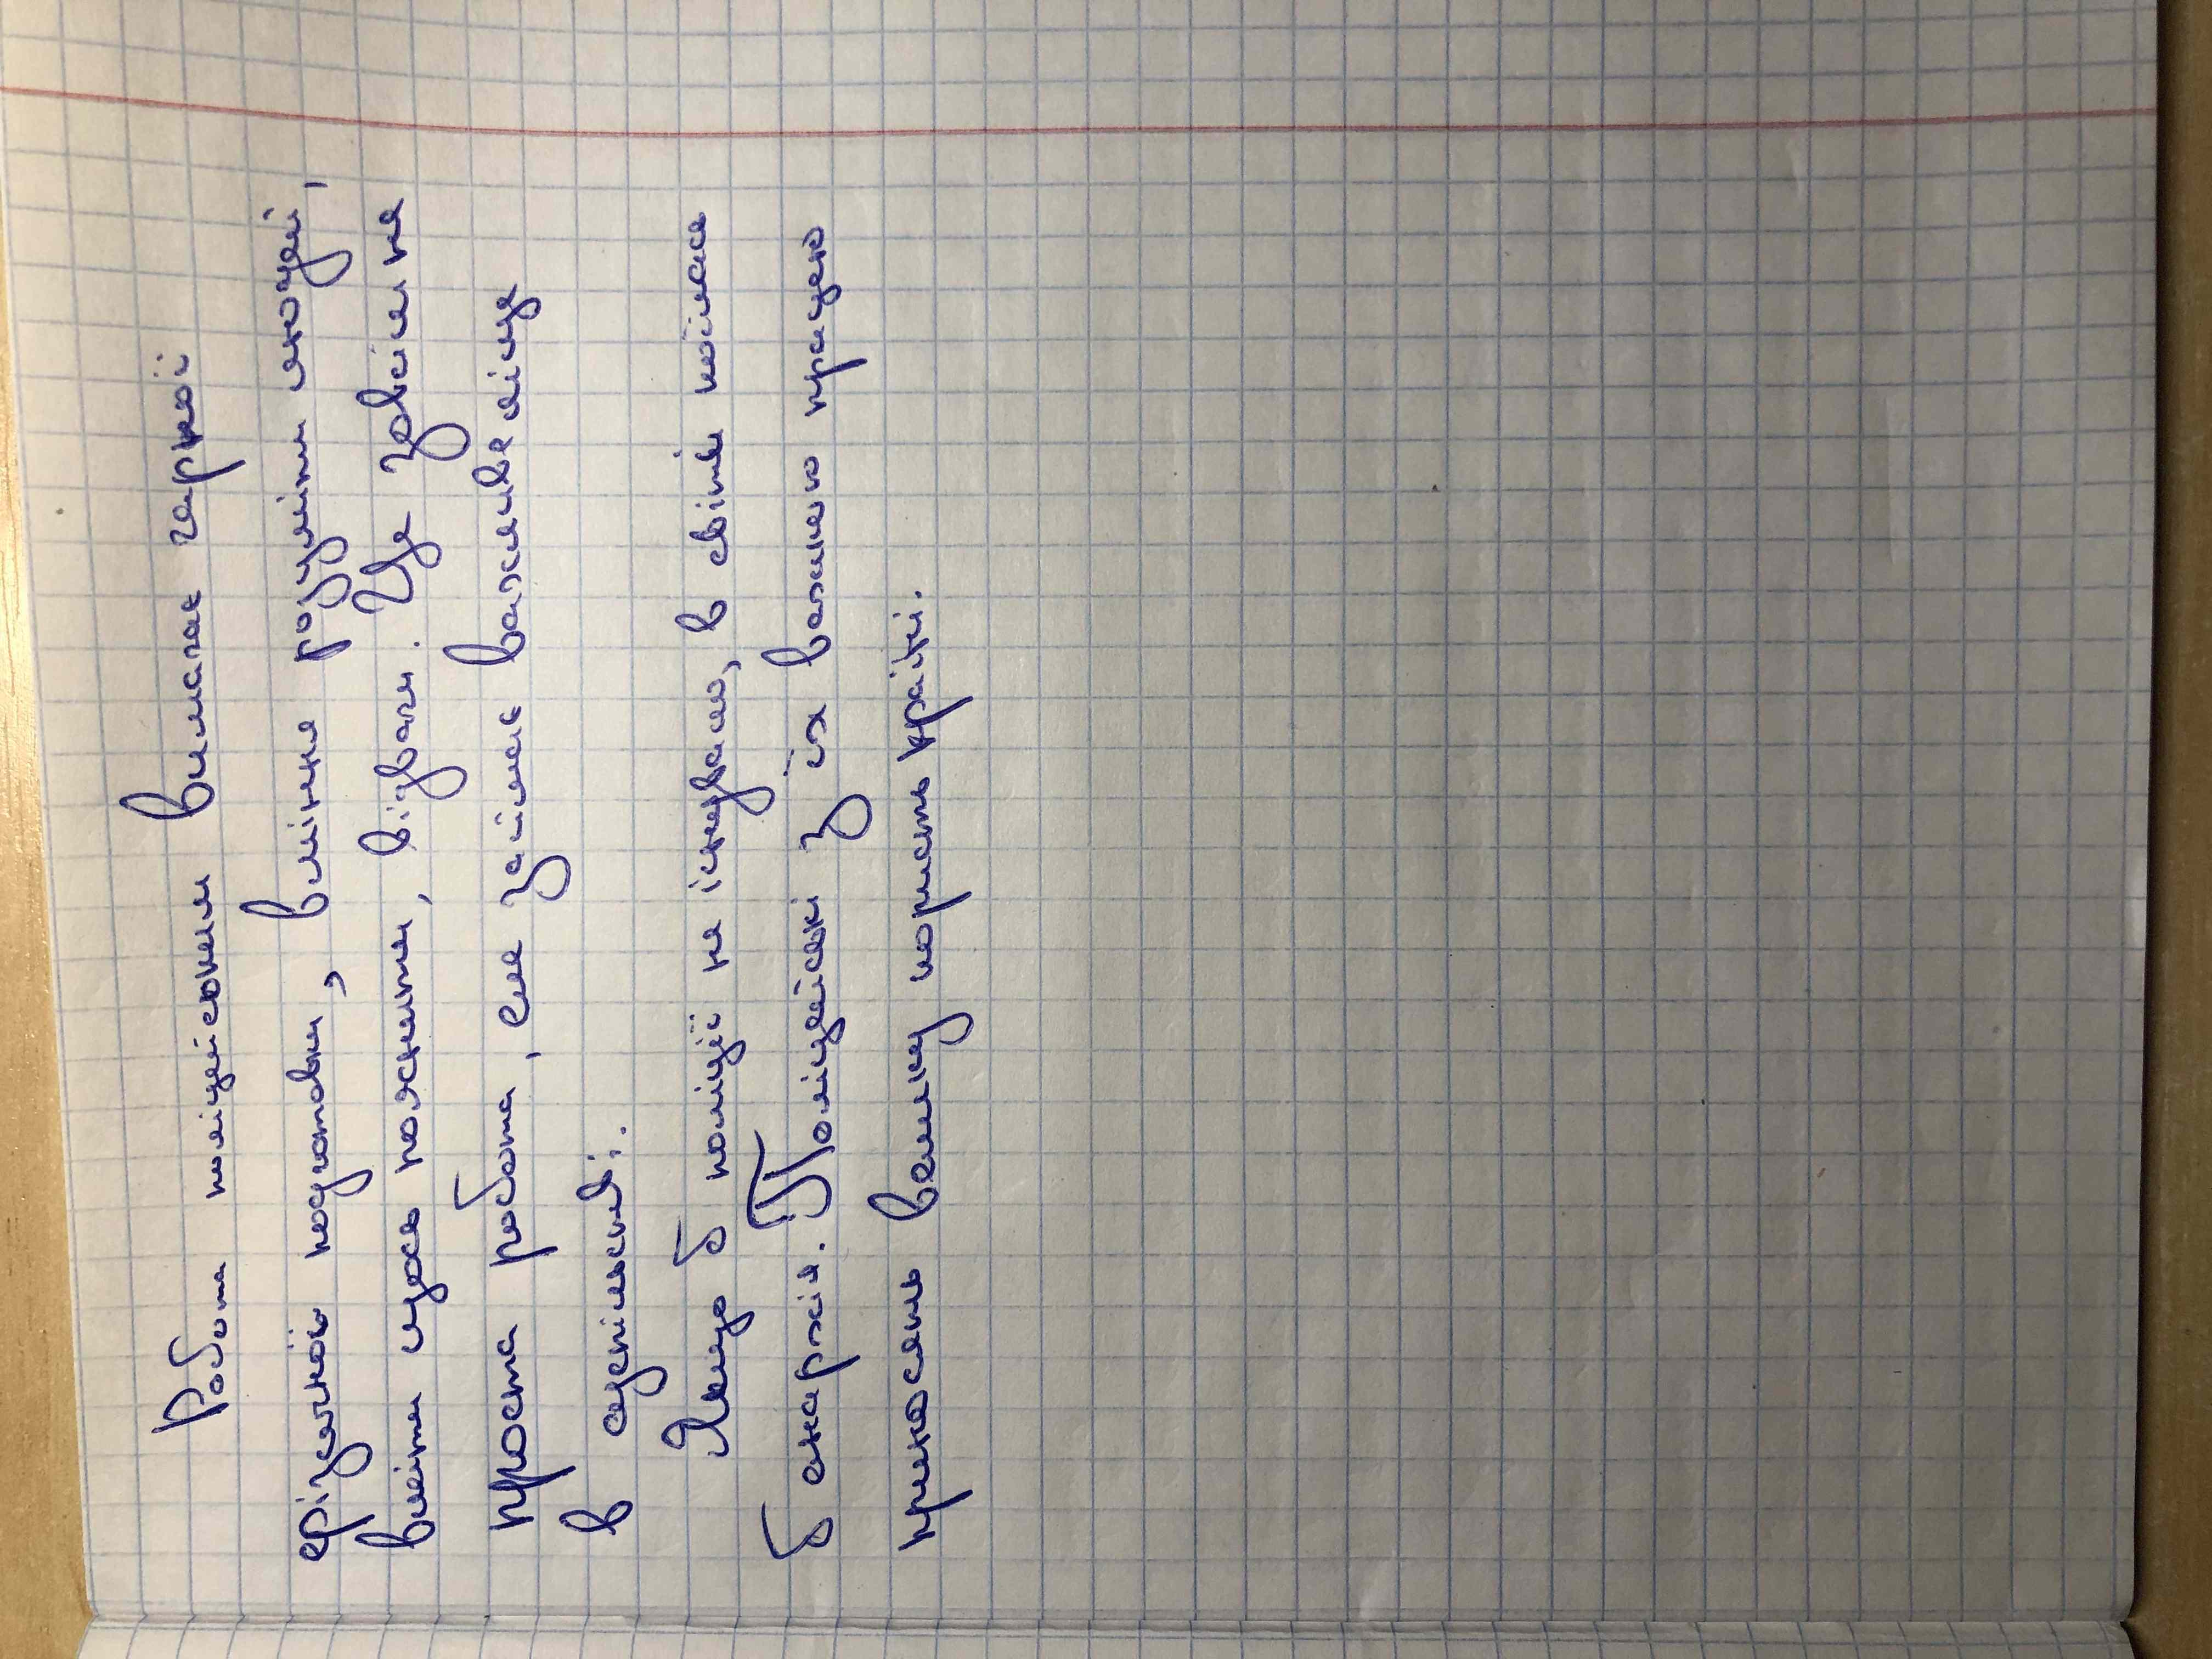 Робота поліцейских вимагає гарної
фізичної подготовки, вміння розуміти людей,
вміти щось пояснити, відваги. Це зовсім не
проста робота, але займає важливе місце
в суспільстві.
Якщо б поліції не існувало, в світі почалася
б анархія. Поліцейскі з їх важкою працею
приносять велику користь країні.